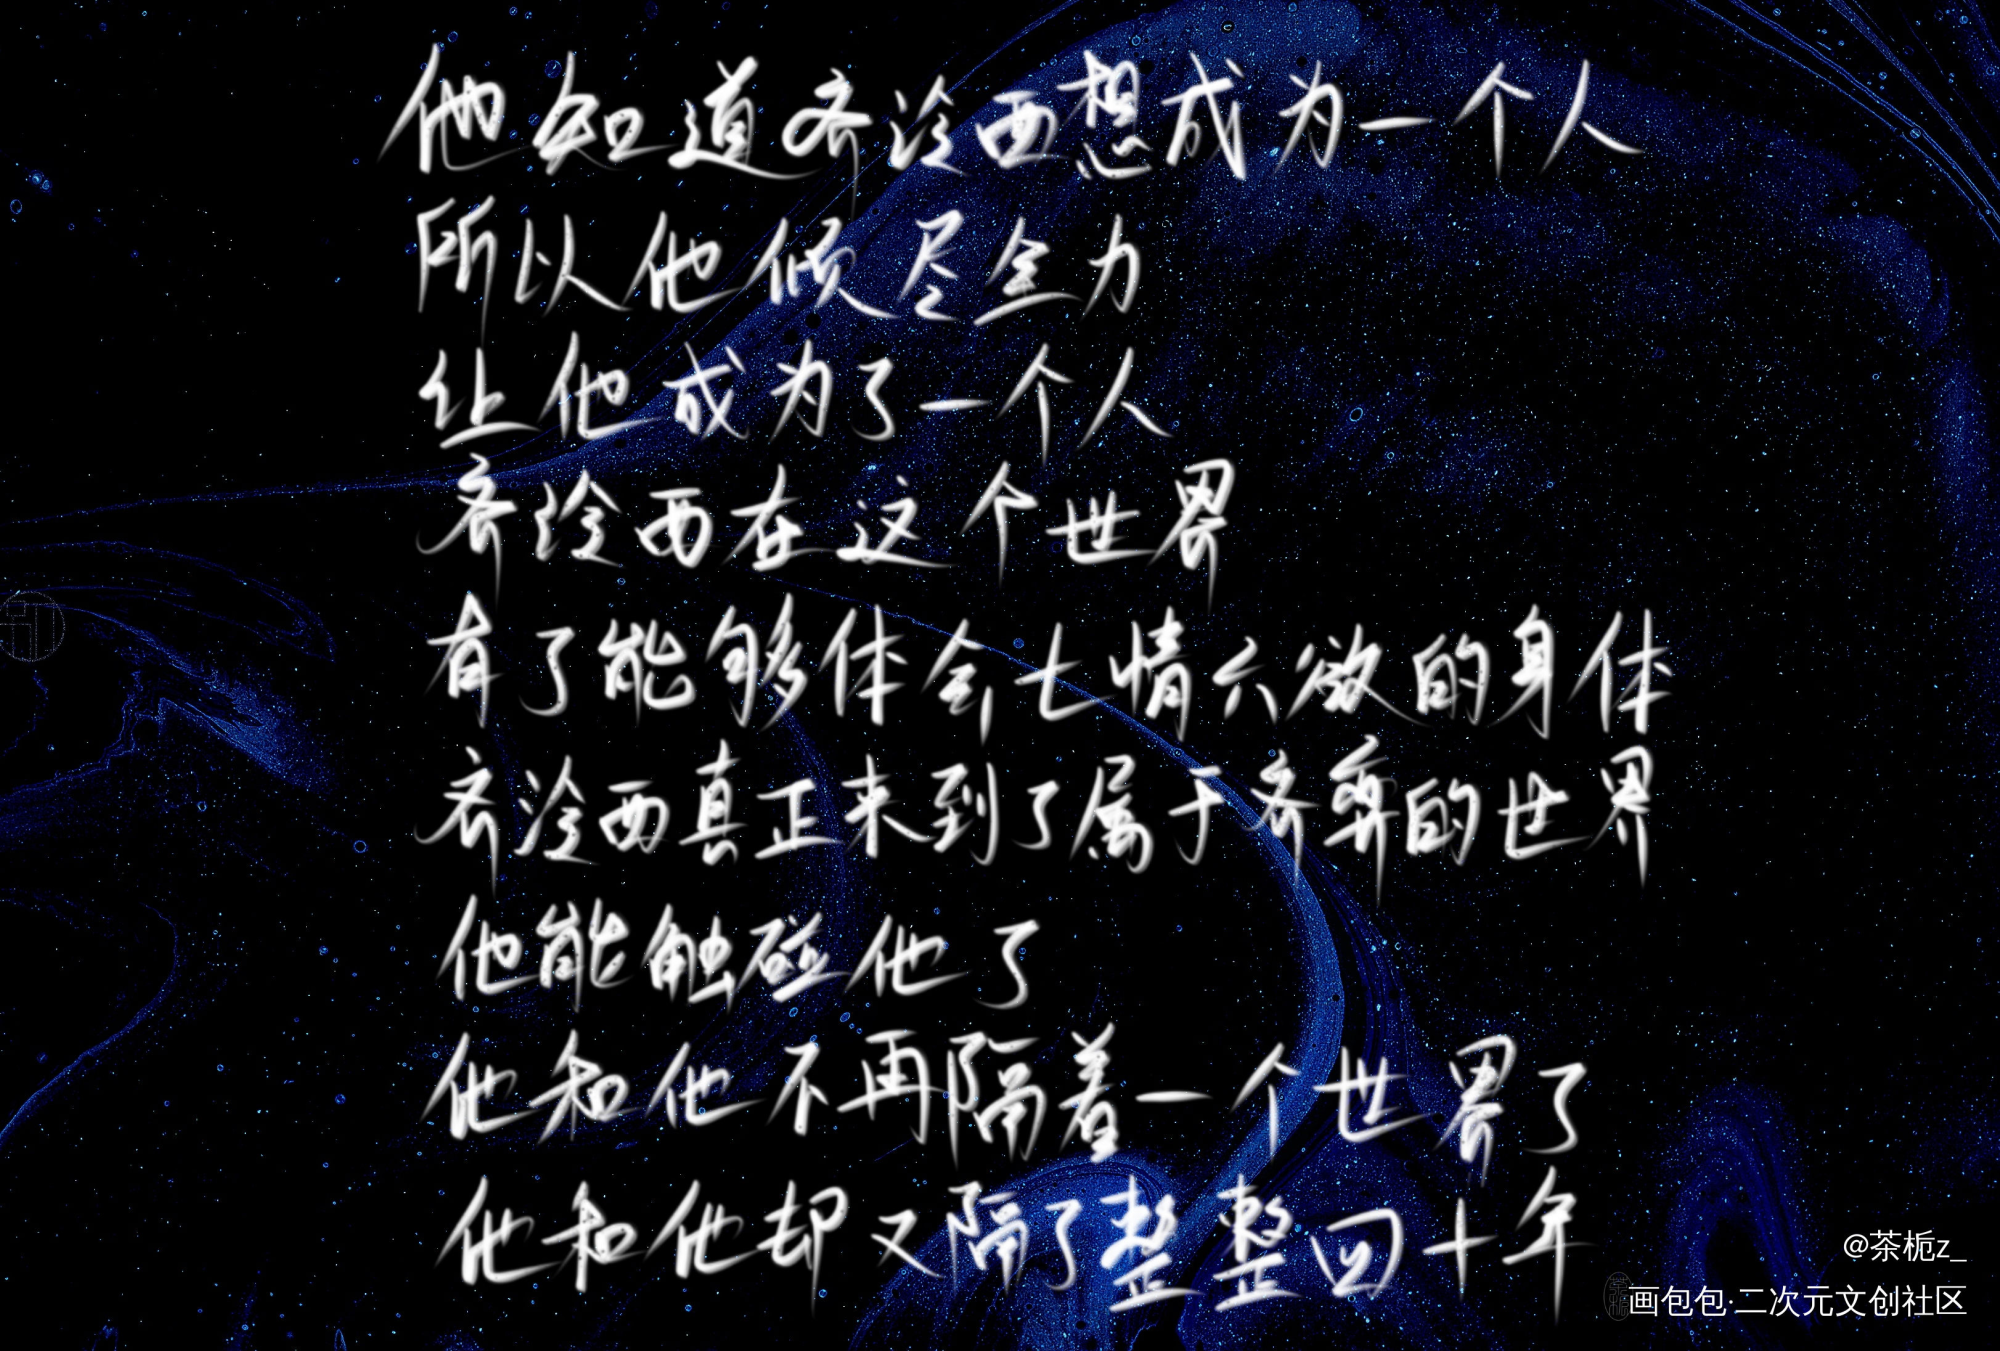 他知道齐泠西想成为一个人
所以他倾尽全力
让他成为了一个人
齐泠西在这个世界
有了能够体会七情六欲的身体
齐泠西真正来到了属于齐弈的世界
他能触碰他了
他和他不再隔着一个世界了
他和他却又隔了整整四十年
@茶栀z_
画包包·二次元文创社区